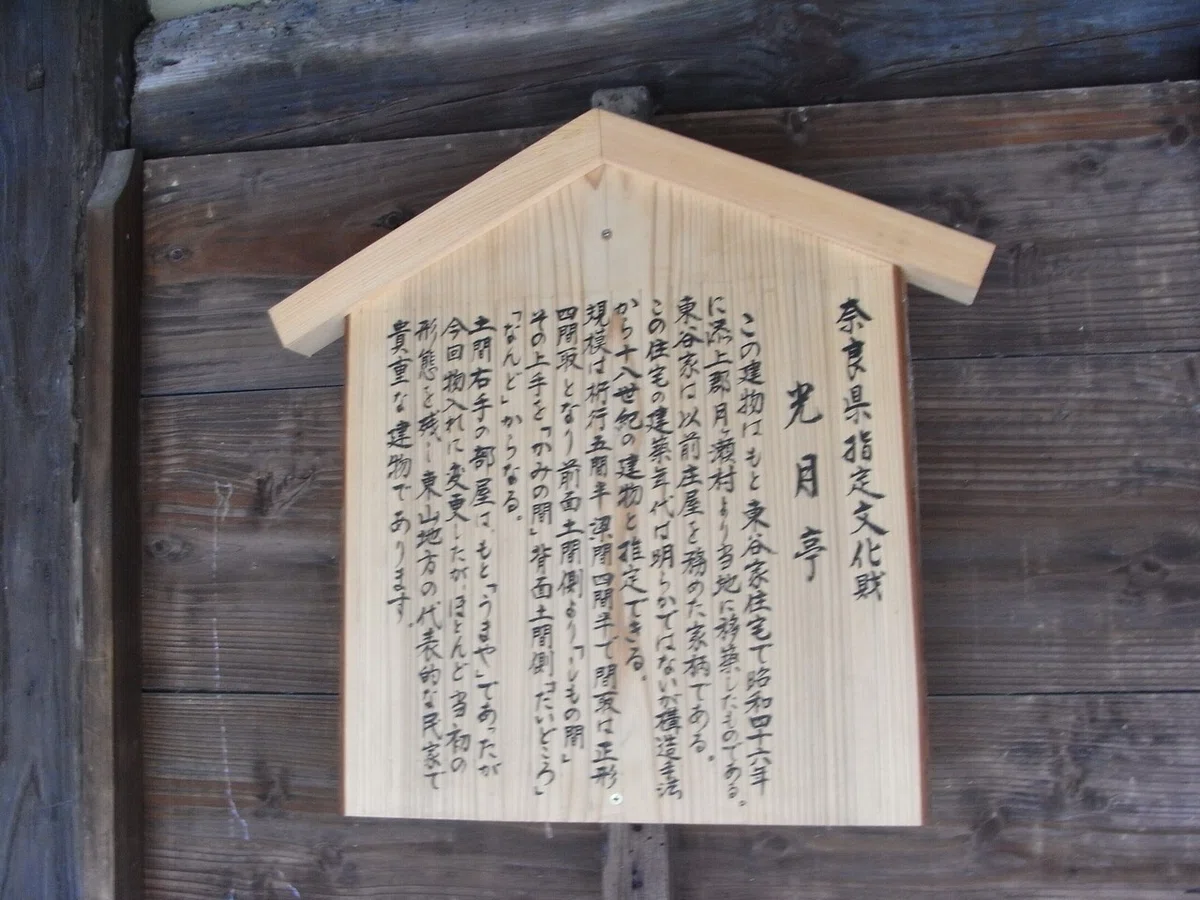 奈良県指定文化財
光月亭
この建物はもと東谷家住宅で昭和四十六年
に添上郡月ヶ瀬村より当地に移築したものである。
東谷家は以前庄屋を務めた家柄である。
この住宅の建築年代は明らかではないが構造手法
から十八世紀の建物と推定できる。
規模は桁行五間半梁間四間半で間取は正形
四間取となり前面土間側より「しもの間」
その上手を「かみの間」背面土間側「だいどころ」
「なんど」からなる。
土間右手の部屋は、もと「うまや」であったが
今回物入れに変更したが、ほとんど当初の
形態を残し東山地方の代表的な民家で
貴重な建物であります。